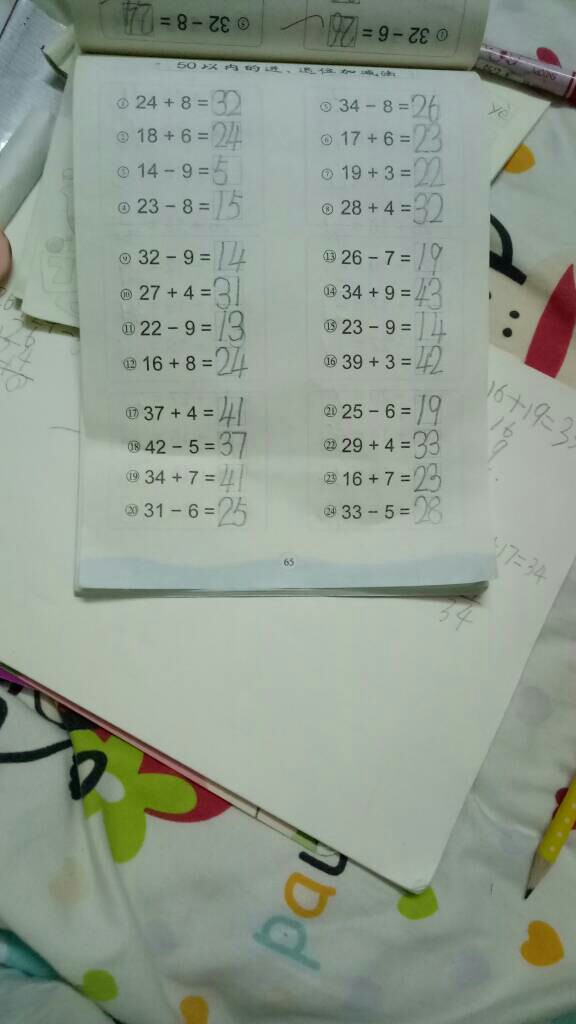 ① 32 − 6 = 26
⑤ 32 − 8 = 24
50以内的进、退位加减法
① 24 + 8 = 32
② 18 + 6 = 24
③ 14 − 9 = 5
④ 23 − 8 = 15
⑤ 34 − 8 = 26
⑥ 17 + 6 = 23
⑦ 19 + 3 = 22
⑧ 28 + 4 = 32
⑨ 32 − 9 = 14
⑩ 27 + 4 = 31
⑪ 22 − 9 = 13
⑫ 16 + 8 = 24
⑬ 26 − 7 = 19
⑭ 34 + 9 = 43
⑮ 23 − 9 = 14
⑯ 39 + 3 = 42
⑰ 37 + 4 = 41
⑱ 42 − 5 = 37
⑲ 34 + 7 = 41
⑳ 31 − 6 = 25
㉑ 25 − 6 = 19
㉒ 29 + 4 = 33
㉓ 16 + 7 = 23
㉔ 33 − 5 = 28
65
yè
16+19=3
16
9
17=34
34
pau